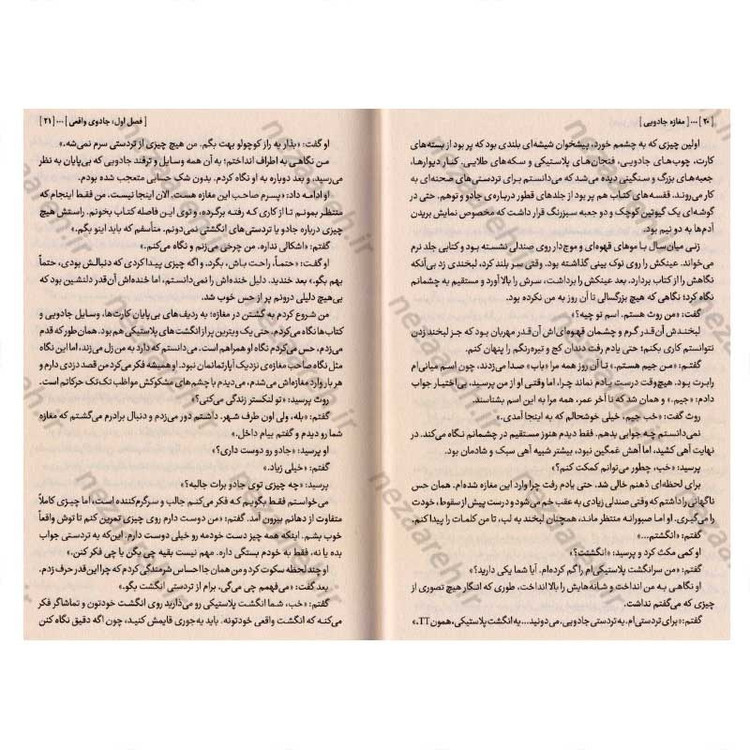 [ ۲۰ ] ... [ مغازه جادویی ]
اولین چیزی که به چشمم خورد، پیشخوان شیشه‌ای بلندی بود که پر بود از بسته‌های
کارت، چوب‌های جادویی، فنجان‌های پلاستیکی و سکه‌های طلایی. کنار دیوارها،
جعبه‌های بزرگ و سنگینی دیده می‌شد که می‌دانستم برای تردستی‌های صحنه‌ای به
کار می‌روند. قفسه‌های کتاب هم پر بود از جلدهای قطور درباره‌ی جادو و توهم. حتی در
گوشه‌ای یک گیوتین کوچک و دو جعبه سبزرنگ قرار داشت که مخصوص نمایش بریدن
آدم‌ها به دو نیم بود.
زنی میان‌سال با موهای قهوه‌ای و موج‌دار روی صندلی نشسته بود و کتابی جلد نرم
می‌خواند. عینکش را روی نوک بینی گذاشته بود. وقتی سر بلند کرد، لبخندی زد بی‌آنکه
نگاهش را از کتاب بردارد. بعد عینکش را برداشت، سرش را بالا آورد و مستقیم به چشمانم
نگاه کرد؛ نگاهی که هیچ بزرگسالی تا آن روز به من نکرده بود.
گفت: «من روث هستم. اسم تو چیه؟»
لبخندش آن‌قدر گرم و چشمان قهوه‌ای‌اش آن‌قدر مهربان بود که جز لبخند زدن
نتوانستم کاری بکنم؛ حتی یادم رفت دندان کج و تیره‌رنگم را پنهان کنم.
گفتم: «من جیم هستم.» تا آن روز همه مرا «باب» صدا می‌زدند، چون اسم میانی‌ام
رابرت بود. هیچ‌وقت درست یادم نماند چرا، اما وقتی او از من پرسید، بی‌اختیار جواب
دادم: «جیم.» و همان شد که تا آخر عمر، همه مرا به این اسم بشناسند.
روث گفت: «خب جیم، خیلی خوشحالم که به اینجا آمدی.»
نمی‌دانستم چه جوابی بدهم. فقط دیدم هنوز مستقیم در چشمانم نگاه می‌کند. در
نهایت آهی کشید، اما آهش غمگین نبود، بیشتر شبیه آهی سبک و شادمان بود.
پرسید: «خب، چطور می‌توانم کمکت کنم؟»
برای لحظه‌ای ذهنم خالی شد. حتی یادم رفت چرا وارد این مغازه شده‌ام. همان حس
ناگهانی را داشتم که وقتی صندلی زیادی به عقب خم می‌شود و درست پیش از سقوط، خودت
را می‌گیری. او اما صبورانه منتظر ماند، همچنان لبخند به لب، تا من کلمات را پیدا کنم.
گفتم: «انگشتم...»
او کمی مکث کرد و پرسید: «انگشتت؟»
گفتم: «من سرانگشت پلاستیکی‌ام را گم کرده‌ام. آیا شما یکی دارید؟»
او نگاهی به من انداخت و شانه‌هایش را بالا انداخت، طوری که انگار هیچ تصوری از
چیزی که می‌گفتم نداشت.
گفتم: «برای تردستی‌ام. یه تردستی جادویی. می‌دونید... یه انگشت پلاستیکی، همون TT.»
[ فصل اول؛ جادوی واقعی ] ... [ ۲۱ ]
او گفت: «بذار یه راز کوچولو بهت بگم. من هیچ چیزی از تردستی سرم نمی‌شه.»
من نگاهی به اطراف انداختم؛ به آن همه وسایل و ترفند جادویی که بی‌پایان به نظر
می‌رسید، و بعد دوباره به او نگاه کردم. بدون شک حسابی متعجب شده بودم.
او ادامه داد: «پسرم صاحب این مغازه هست. الان اینجا نیست. من فقط اینجام که
منتظر بمونم تا از کاری که رفته برگرده، و توی این فاصله کتاب بخونم. راستش هیچ
چیزی درباره جادو یا تردستی‌های انگشتی نمی‌دونم. متأسفم که باید اینو بگم.»
گفتم: «اشکالی نداره. من چرخی می‌زنم و نگاه می‌کنم.»
او گفت: «حتماً، راحت باش، بگرد. و اگه چیزی پیدا کردی که دنبالش بودی، حتماً
بهم بگو.» بعد خندید. دلیل خنده‌اش را نمی‌دانستم، اما خنده‌اش آن‌قدر دلنشین بود که
بی‌هیچ دلیلی درونم پر از حس خوب شد.
من شروع کردم به گشتن در مغازه؛ به ردیف‌های بی‌پایان کارت‌ها، وسایل جادویی و
کتاب‌ها نگاه می‌کردم. حتی یک ویترین پر از انگشت‌های پلاستیکی هم بود. همان‌طور که قدم
می‌زدم، حس می‌کردم نگاه او همراهم است. می‌دانستم که دارد به من زل می‌زند، اما این نگاه
مثل نگاه صاحب مغازه‌ی نزدیک آپارتمانمان نبود. او همیشه فکر می‌کرد من قصد دزدی دارم و
هر بار وارد مغازه‌اش می‌شدم، می‌دیدم با چشم‌های مشکوکش مواظب تک‌تک حرکاتم است.
روث پرسید: «تو لنکستر زندگی می‌کنی؟»
گفتم: «بله، ولی اون طرف شهر. داشتم دور می‌زدم و دنبال برادرم می‌گشتم که مغازه
شما رو دیدم و گفتم بیام داخل.»
او پرسید: «جادو رو دوست داری؟»
گفتم: «خیلی زیاد.»
پرسید: «چه چیزی توی جادو برات جالبه؟»
می‌خواستم فقط بگویم که فکر می‌کنم جالب و سرگرم‌کننده است، اما چیزی کاملاً
متفاوت از دهانم بیرون آمد. گفتم: «من دوست دارم روی چیزی تمرین کنم تا توش واقعاً
خوب بشم. اینکه همه چیز دست خودمه رو خیلی دوست دارم. این‌که یه تردستی جواب
بده یا نه، فقط به خودم بستگی داره. مهم نیست بقیه چی بگن یا چی فکر کنن.»
او چند لحظه سکوت کرد و من همان جا احساس شرمندگی کردم که چرا این قدر حرف زدم.
بعد گفت: «می‌فهمم چی می‌گی. برام از تردستی انگشت بگو.»
گفتم: «خب، شما انگشت پلاستیکی رو می‌ذارید روی انگشت خودتون و تماشاگر فکر
می‌کنه که انگشت واقعی خودتونه. باید یه‌جوری قایمش کنید، چون اگه دقیق نگاه کنن
nezaareh.ir